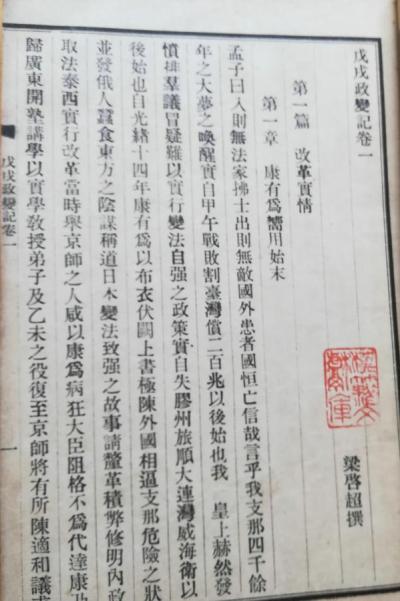 戊戌政變記卷一
梁啓超撰
第一篇 改革實情
第一章 康有爲嚮用始末
孟子曰入則無法家拂士出則無敵國外患者國恒亡信哉言乎我支那四千餘
年之大夢之喚醒實自甲午戰敗割臺灣償二百兆以後始也我 皇上赫然發
憤排羣議冒疑難以實行變法自强之政策實自失膠州旅順大連灣威海衛以
後始也自光緒十四年康有爲以布衣伏闕上書極陳外國相逼支那危險之狀
並發俄人蠶食東方之陰謀稱道日本變法致强之故事請釐革積弊修明內政
取法泰西實行改革當時舉京師之人咸以康爲病狂大臣阻格不爲代達康乃
歸廣東開塾講學以實學教授弟子及乙未之役復至京師將有所陳適和議
戊戌政變記卷一
一